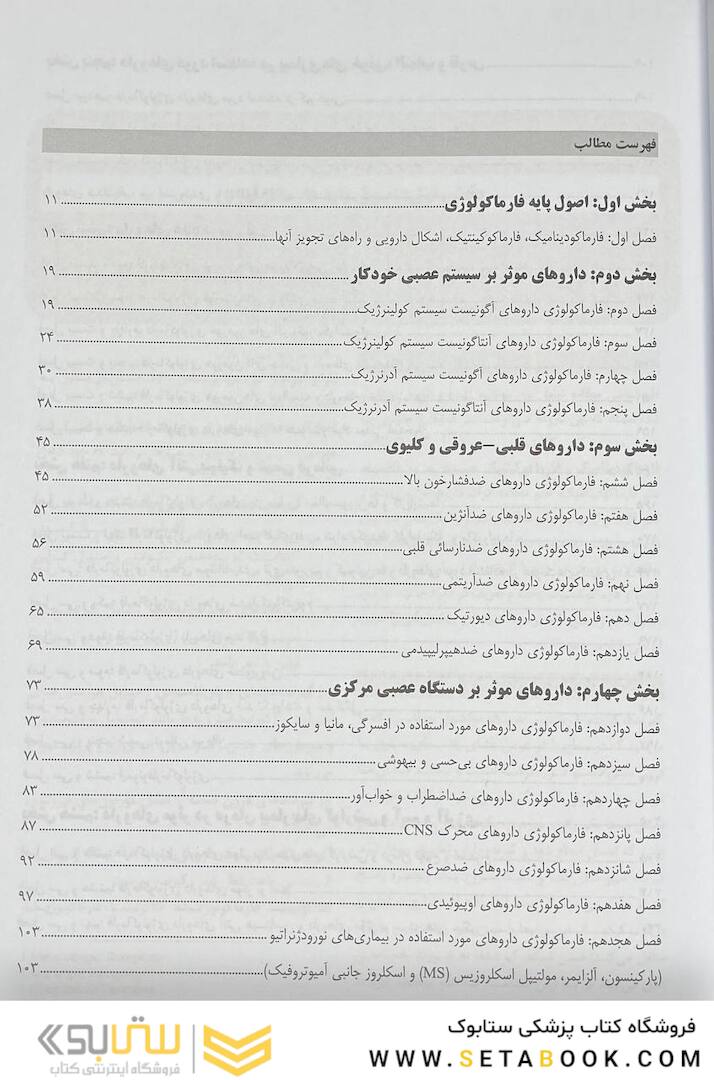 فهرست مطالب
بخش اول: اصول پایه فارماکولوژی ۱۱
فصل اول: فارماکودینامیک، فارماکوکینتیک، اشکال دارویی و راه‌های تجویز آنها ۱۱
بخش دوم: داروهای موثر بر سیستم عصبی خودکار ۱۹
فصل دوم: فارماکولوژی داروهای آگونیست سیستم کولینرژیک ۱۹
فصل سوم: فارماکولوژی داروهای آنتاگونیست سیستم کولینرژیک ۲۴
فصل چهارم: فارماکولوژی داروهای آگونیست سیستم آدرنرژیک ۳۰
فصل پنجم: فارماکولوژی داروهای آنتاگونیست سیستم آدرنرژیک ۳۸
بخش سوم: داروهای قلبی-عروقی و کلیوی ۴۵
فصل ششم: فارماکولوژی داروهای ضدفشارخون بالا ۴۵
فصل هفتم: فارماکولوژی داروهای ضدآنژین ۵۲
فصل هشتم: فارماکولوژی داروهای ضدنارسائی قلبی ۵۶
فصل نهم: فارماکولوژی داروهای ضدآریتمی ۵۹
فصل دهم: فارماکولوژی داروهای دیورتیک ۶۵
فصل یازدهم: فارماکولوژی داروهای ضدهیپرلیپیدمی ۶۹
بخش چهارم: داروهای موثر بر دستگاه عصبی مرکزی ۷۳
فصل دوازدهم: فارماکولوژی داروهای مورد استفاده در افسرگی، مانیا و سایکوز ۷۳
فصل سیزدهم: فارماکولوژی داروهای بی‌حسی و بیهوشی ۷۸
فصل چهاردهم: فارماکولوژی داروهای ضداضطراب و خواب‌آور ۸۳
فصل پانزدهم: فارماکولوژی داروهای محرک CNS ۸۷
فصل شانزدهم: فارماکولوژی داروهای ضدصرع ۹۲
فصل هفدهم: فارماکولوژی داروهای اوپیوئیدی ۹۷
فصل هجدهم: فارماکولوژی داروهای مورد استفاده در بیماری‌های نورودژنراتیو ۱۰۳
(پارکینسون، آلزایمر، مولتیپل اسکلروزیس (MS) و اسکلروز جانبی آمیوتروفیک) ۱۰۳
فروشگاه کتاب پزشکی ستابوک
WWW.SETABOOK.COM
ستابوک
فروشگاه اینترنتی کتاب